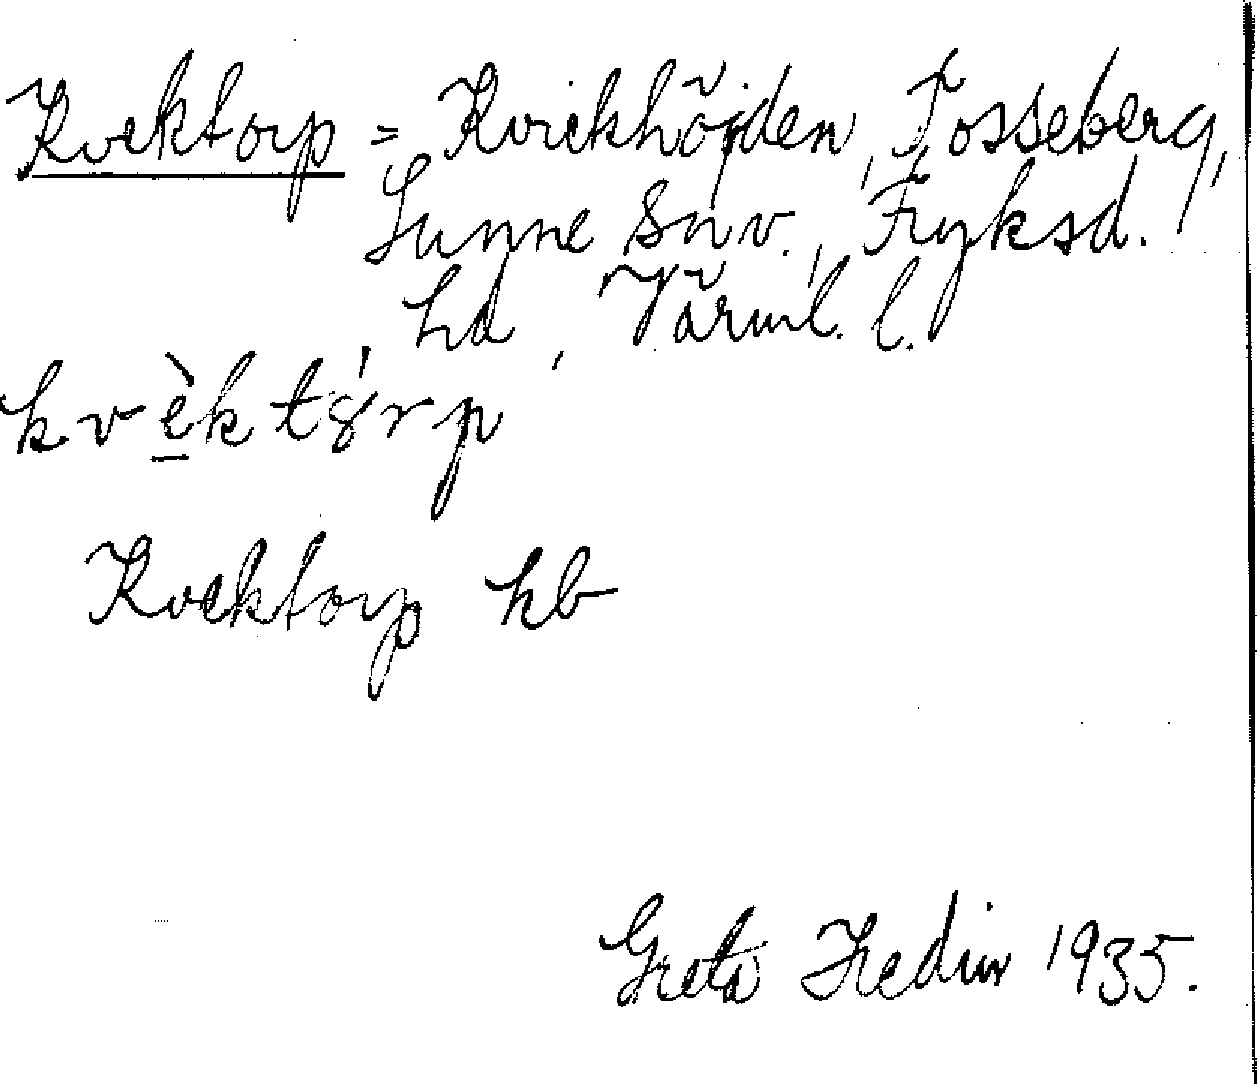 Kvektorp = Kvickhöjden, Tosseberg,
Sunne snv., Fryksd.
hd, Värml. l.
kvè̠ktȣ́rp
Kvektorp hb
Greta Hedin 1935.